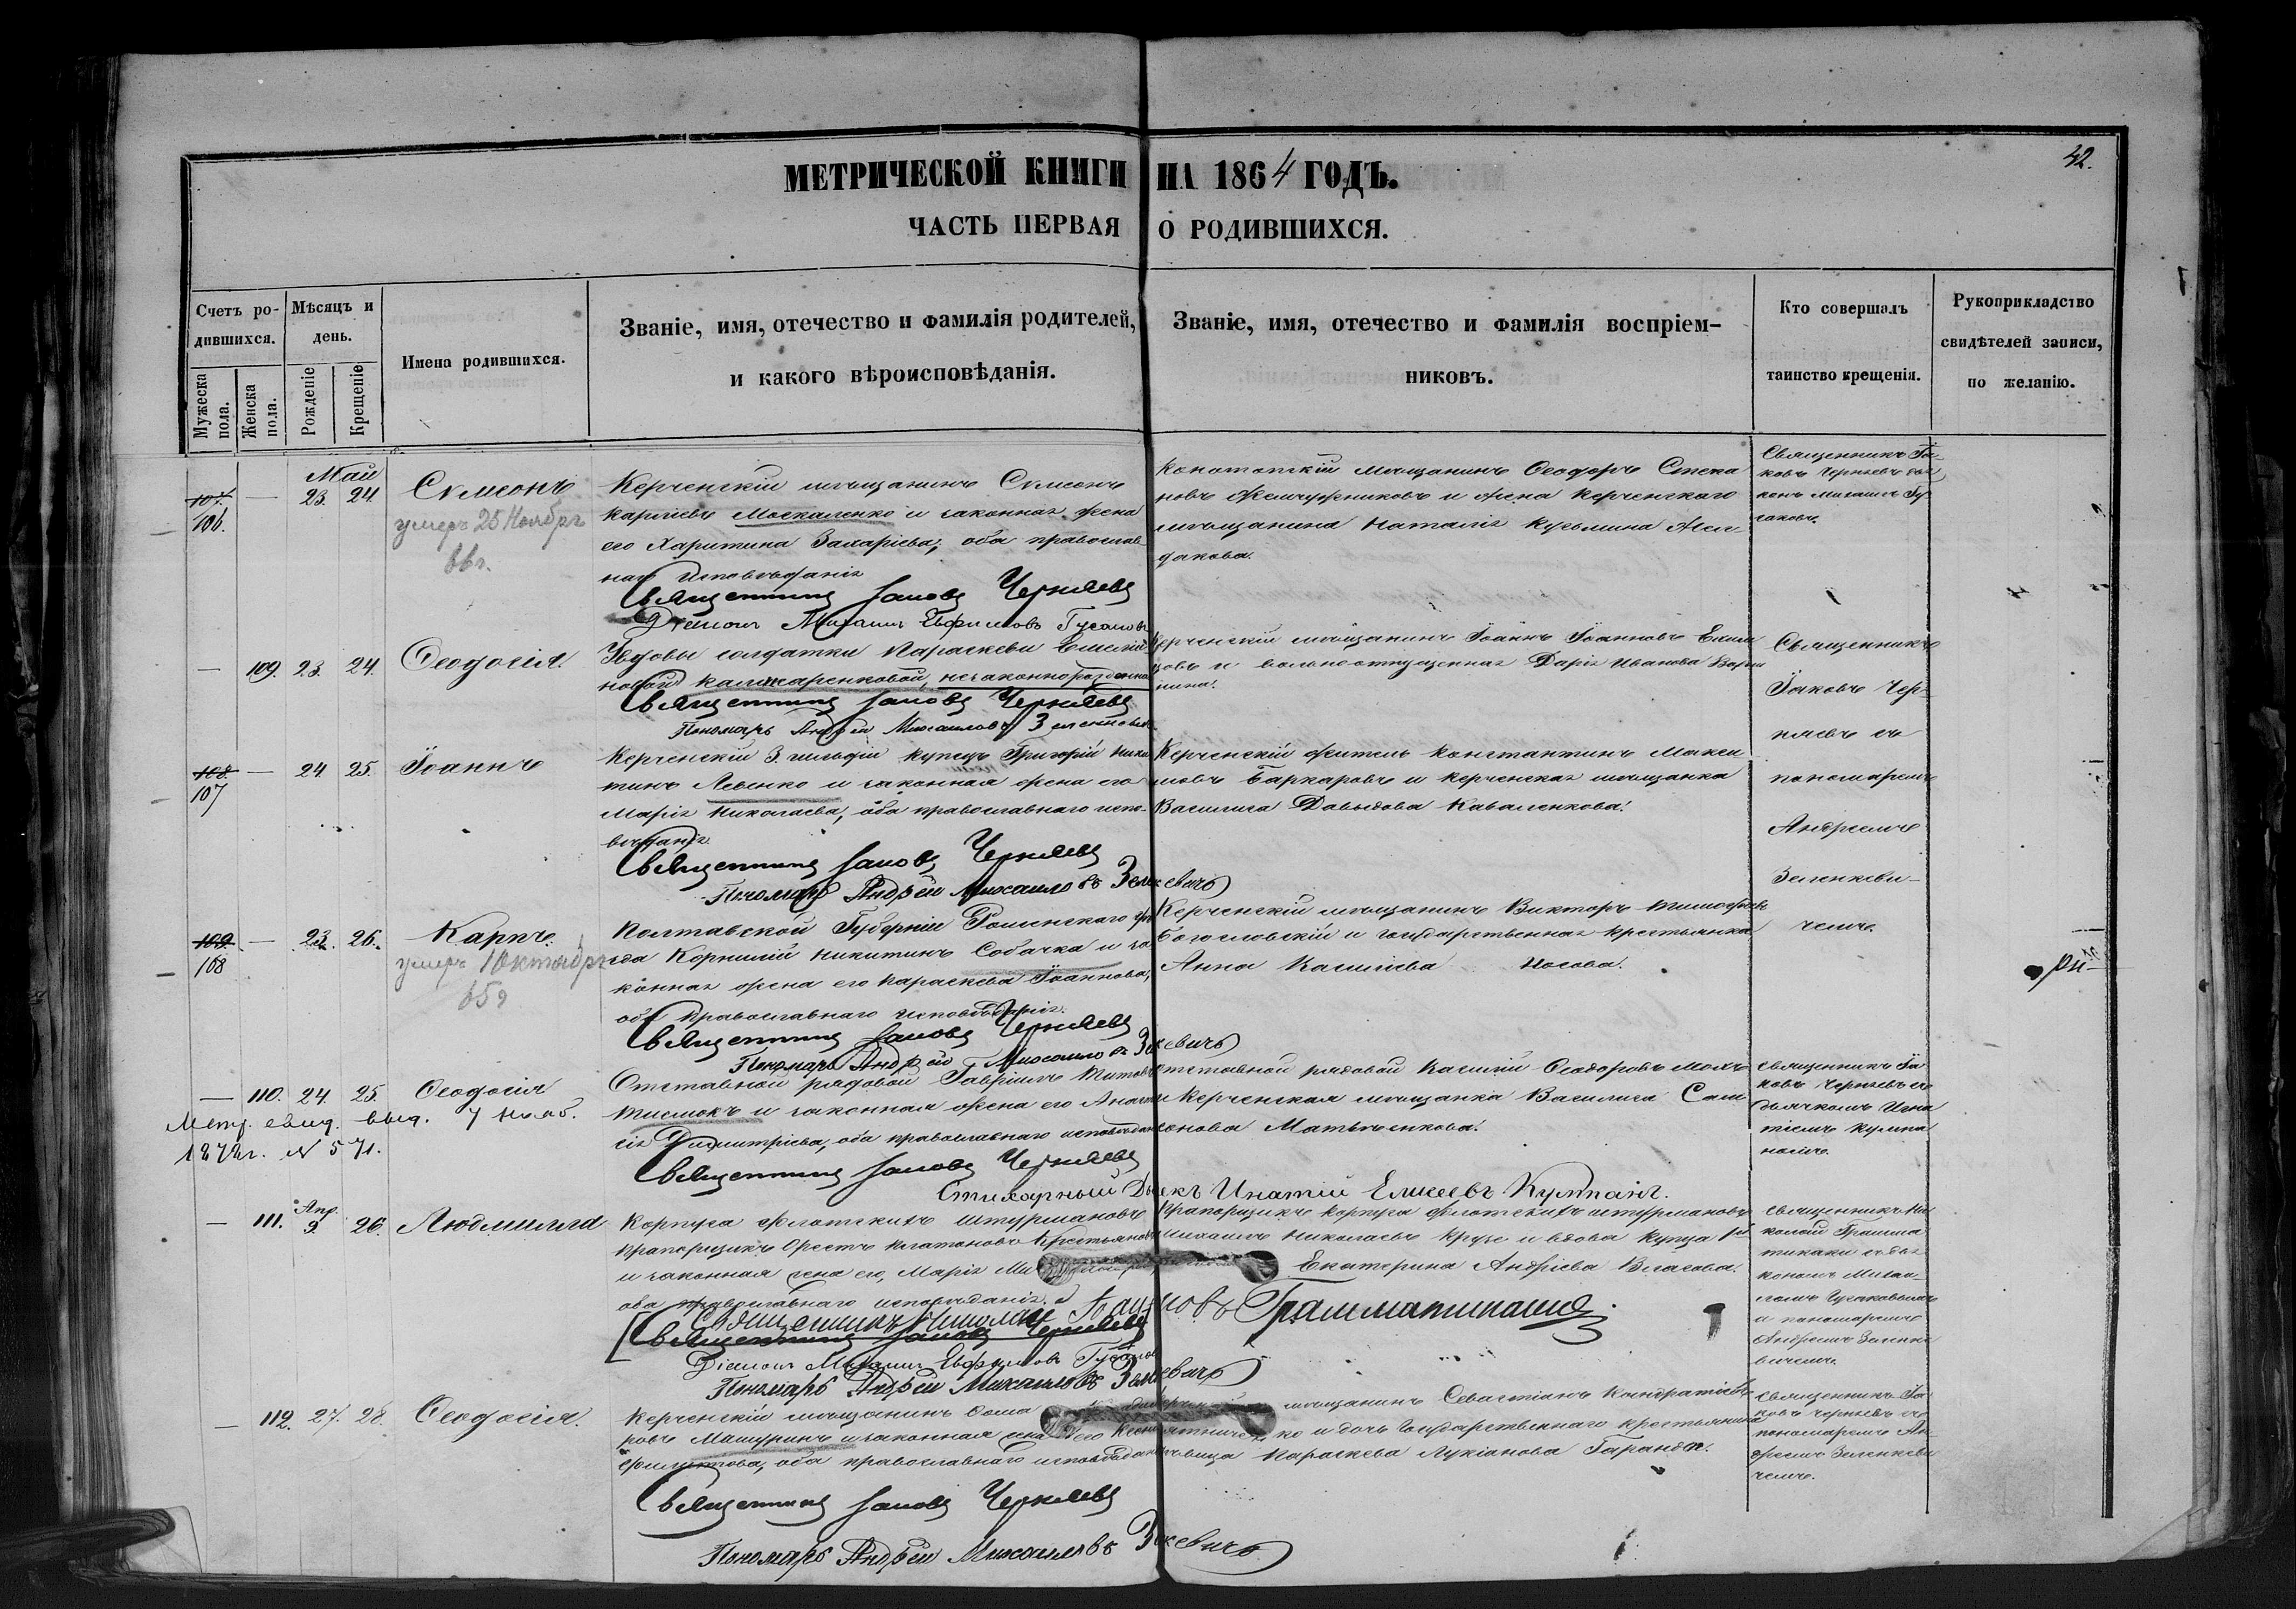 42.
МЕТРИЧЕСКОЙ КНИГИ НА 1864 ГОДЪ.
ЧАСТЬ ПЕРВАЯ О РОДИВШИХСЯ.
Счетъ ро-
дившихся.
Мужеска пола.
Женска пола.
Мѣсяцъ и
день.
Рожденіе
Крещеніе
Имена родившихся.
Званіе, имя, отечество и фамилія родителей,
и какого вѣроисповѣданія.
Званіе, имя, отечество и фамилія воспріем-
никовъ.
Кто совершалъ
таинство крещенія.
Рукоприкладство
свидѣтелей записи,
по желанію.
Май
107.
106.
—
23. 24.
Сѵмеонъ
умеръ 25 Ноября
66г.
Керченскій мѣщанинъ Сѵмеонъ
Карпіевъ Москаленко и законная жена
его Харитина Захаріева, оба православ-
наго исповѣданія
Священникъ Іаковъ Черняевъ
Діаконъ Михаилъ Евфимовъ Гусаковъ
Конотопскій мѣщанинъ Ѳеодоръ Степа
новъ Жемчужниковъ и жена Керченскаго
мѣщанина Наталія Кузьмина
дакова.
Священникъ Іа-
ковъ Черняевъ діа
конъ Михаилъ Гу-
саковъ.
— 109. 23. 24. Ѳеодосія.
Вдовы солдатки Параскевы
новой незаконнорожденна
Священникъ Іаковъ Черняевъ
Пономарь Андрей Михаиловъ Зеленкевичъ
Керченскій мѣщанинъ Іоаннъ Іоанновъ
и вольноотпущенная Дарія Иванова
нина.
Священникъ
Іаковъ Чер-
няевъ съ
пономаремъ
Андреемъ
Зеленкеви-
чемъ.
108. — 24 25. Іоаннъ
107
Керченскій 3. гильдіи купецъ Григорій Ники
тинъ Левенко и законная жена его
Марія Николаева, оба православнаго испо-
вѣданія.
Священникъ Іаковъ Черняевъ
Пономарь Андрей Михаиловъ Зеленкевичъ
Керченскій житель Константинъ Макси
мовъ Баркаровъ и Керченская мѣщанка
Василиса Давыдова Коваленкова.
109. — 23. 26. Карпъ.
108
умеръ 1 Октября
65г
Полтавской Губерніи Роменскаго уѣ
зда Корнилій Никитинъ Собачка и за
конная жена его Параскева Іоаннова,
оба православнаго исповѣданія.
Священникъ Іаковъ Черняевъ
Пономарь Андрей Михаиловъ Зеленкевичъ
Керченскій мѣщанинъ Викторъ Тимофѣевъ
Богословскій и государственная крестьянка
Анна Касиліева Носова.
— 110. 24. 25. Ѳеодосія
Метр. свид. выд. 7 Нояб.
1872г. N 571.
Отставной рядовой Гавріилъ Титовъ
и законная жена его Анаста
сія Димитріева, оба православнаго исповѣданія
Священникъ Іаковъ Черняевъ
Стихарный Дьякъ Игнатій Елисеевъ Кулпанъ.
Отставной рядовой Василій Ѳеодоровъ
и Керченская мѣщанка Василиса Сам
сонова Матвѣенкова.
Священникъ Іа
ковъ Черняевъ съ
дьячкомъ Игна
тіемъ Кулпа
номъ.
— 111. Апр. 9. 26. Людмилла
Корпуса флотскихъ штурмановъ
прапорщикъ Орестъ Платоновъ Крестьяновъ
и законная жена его, Марія
оба православнаго исповѣданія.
Священникъ Николай Іоанновъ Грамматикакій
Священникъ Іаковъ Черняевъ
Діаконъ Михаилъ Евфимовъ Гусаковъ
Пономарь Андрей Михаиловъ Зеленкевичъ
Прапорщикъ корпуса флотскихъ штурмановъ
Михаилъ Николаевъ Крузе и вдова купца
Екатерина Андріева Власова.
Священникъ Ни
колай Грамма
тикаки съ діа
кономъ Миха-
ломъ Гусаковымъ
и пономаремъ
Андреемъ Зеленке
вичемъ.
— 112. 27. 28. Ѳеодосія.
Керченскій мѣщанинъ Ѳома
ровъ Машуринъ и законная жена его Ксенія
Филиппова, оба православнаго исповѣданія
Священникъ Іаковъ Черняевъ
Пономарь Андрей Михаиловъ Зеленкевичъ
мѣщанинъ Севастіанъ Кондратіевъ
и дочь государственнаго крестьянина
дѣвица Параскева Лукіанова Гаранда.
Священникъ Іа
ковъ Черняевъ съ
пономаремъ Ан
дреемъ Зеленкеви
чемъ.